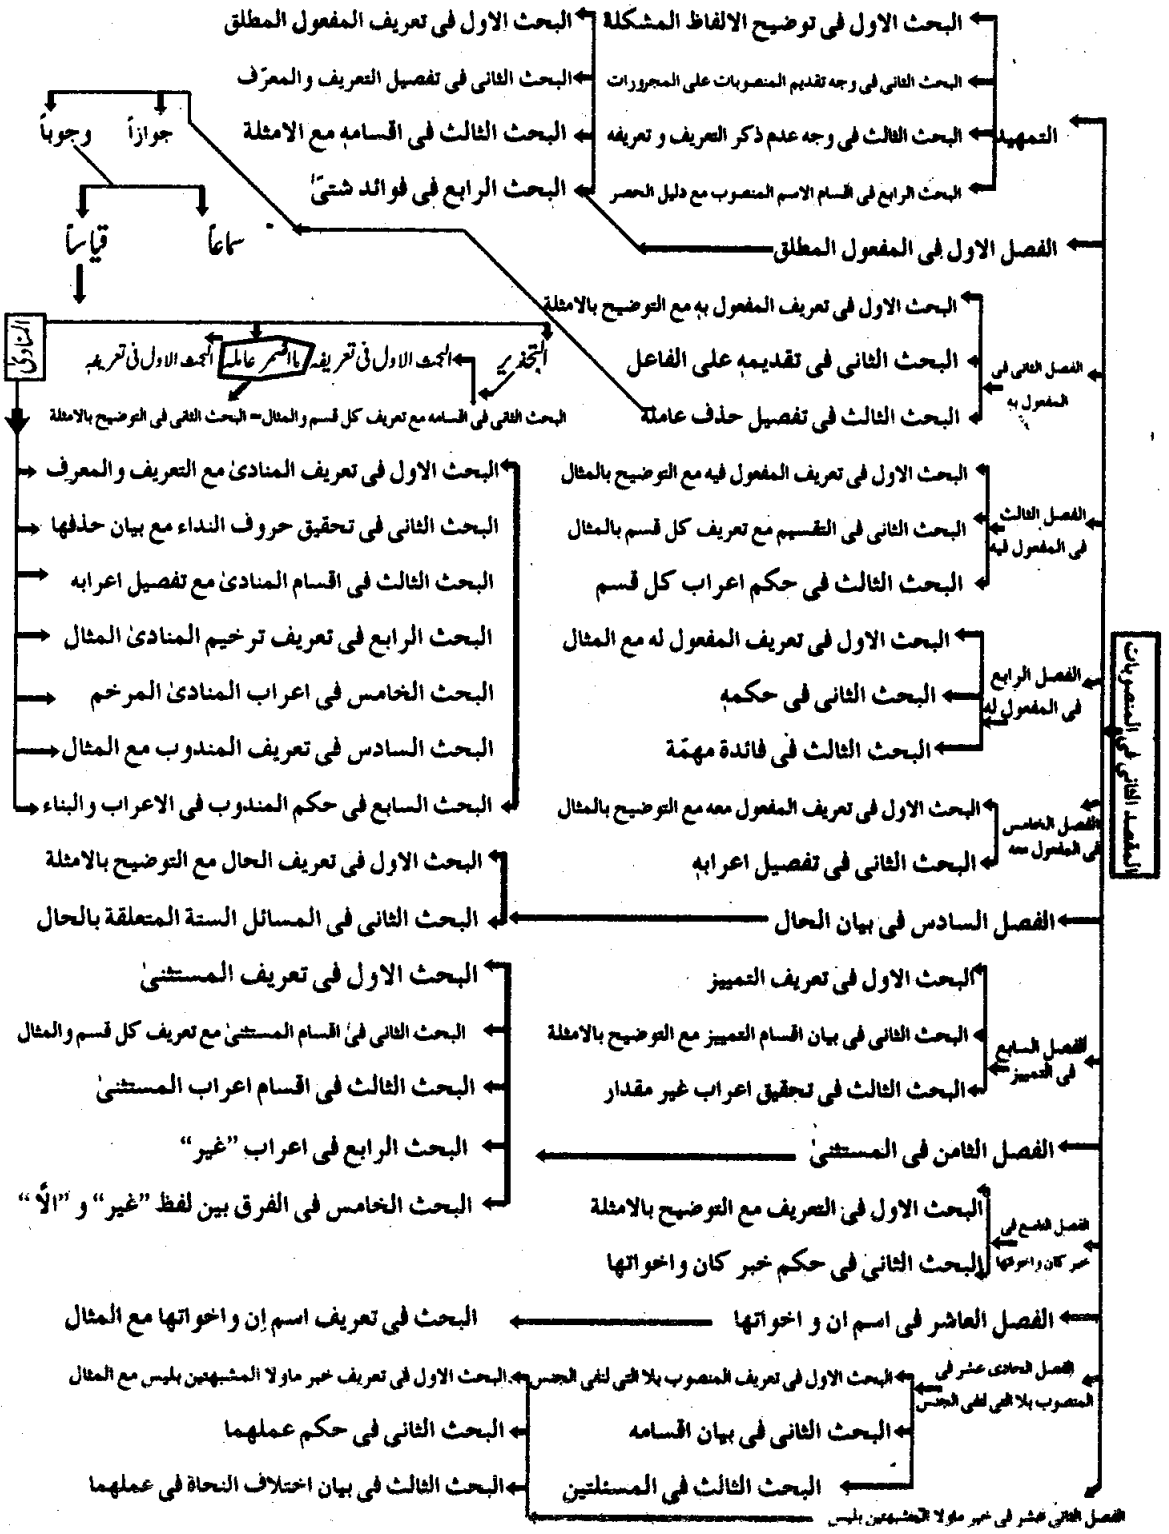 المقصد الثانى فى المنصوبات
التمهيد
البحث الاول فى توضيح الالفاظ المشكلة
البحث الثانى فى وجه تقديم المنصوبات على المجرورات
البحث الثالث فى وجه عدم ذكر التعريف و تعريفه
البحث الرابع فى اقسام الاسم المنصوب مع دليل الحصر
الفصل الاول فى المفعول المطلق
البحث الاول فى تعريف المفعول المطلق
البحث الثانى فى تفصيل التعريف والمعرّف
البحث الثالث فى اقسامه مع الامثلة
البحث الرابع فى فوائد شتّىٰ
الفصل الثانى فى
المفعول به
البحث الاول فى تعريف المفعول به مع التوضيح بالامثلة
البحث الثانى فى تقديمه على الفاعل
البحث الثالث فى تفصيل حذف عامله
جوازاً
وجوباً
سماعاً
قياساً
التحذير
البحث الاول فى تعريفه
ما اضمر عامله
البحث الاول فى تعريفه
المنادىٰ
البحث الثانى فى اقسامه مع تعريف كل قسم والمثال
البحث الثانى فى التوضيح بالامثلة
البحث الاول فى تعريف المنادىٰ مع التعريف والمعرف
البحث الثانى فى تحقيق حروف النداء مع بيان حذفها
البحث الثالث فى اقسام المنادىٰ مع تفصيل اعرابه
البحث الرابع فى تعريف ترخيم المنادىٰ المثال
البحث الخامس فى اعراب المنادىٰ المرخم
البحث السادس فى تعريف المندوب مع المثال
البحث السابع فى حكم المندوب فى الاعراب والبناء
الفصل الثالث
فى المفعول فيه
البحث الاول فى تعريف المفعول فيه مع التوضيح بالمثال
البحث الثانى فى التقسيم مع تعريف كل قسم بالمثال
البحث الثالث فى حكم اعراب كل قسم
الفصل الرابع
فى المفعول له
البحث الاول فى تعريف المفعول له مع المثال
البحث الثانى فى حكمه
البحث الثالث فى فائدة مهمّة
الفصل الخامس
فى المفعول معه
البحث الاول فى تعريف المفعول معه مع التوضيح بالمثال
البحث الثانى فى تفصيل اعرابه
الفصل السادس فى بيان الحال
البحث الاول فى تعريف الحال مع التوضيح بالامثلة
البحث الثانى فى المسائل الستة المتعلقة بالحال
الفصل السابع
فى التمييز
البحث الاول فى تعريف التمييز
البحث الثانى فى بيان اقسام التمييز مع التوضيح بالامثلة
البحث الثالث فى تحقيق اعراب غير مقدار
الفصل الثامن فى المستثنىٰ
البحث الاول فى تعريف المستثنىٰ
البحث الثانى فى اقسام المستثنىٰ مع تعريف كل قسم والمثال
البحث الثالث فى اقسام اعراب المستثنىٰ
البحث الرابع فى اعراب ”غير“
البحث الخامس فى الفرق بين لفظ ”غير“ و ”الّا“
الفصل التاسع فى
خبر كان واخواتها
البحث الاول فى التعريف مع التوضيح بالامثلة
البحث الثانى فى حكم خبر كان واخواتها
الفصل العاشر فى اسم ان و اخواتها
البحث فى تعريف اسم إن واخواتها مع المثال
الفصل الحادى عشر فى
المنصوب بلا التى لنفى الجنس
البحث الاول فى تعريف المنصوب بلا التى لنفى الجنس
البحث الثانى فى بيان اقسامه
البحث الثالث فى المسئلتين
الفصل الثانى عشر فى خبر ماولا المشبهتين بليس
البحث الاول فى تعريف خبر ماولا المشبهتين بليس مع المثال
البحث الثانى فى حكم عملهما
البحث الثالث فى بيان اختلاف النحاة فى عملهما